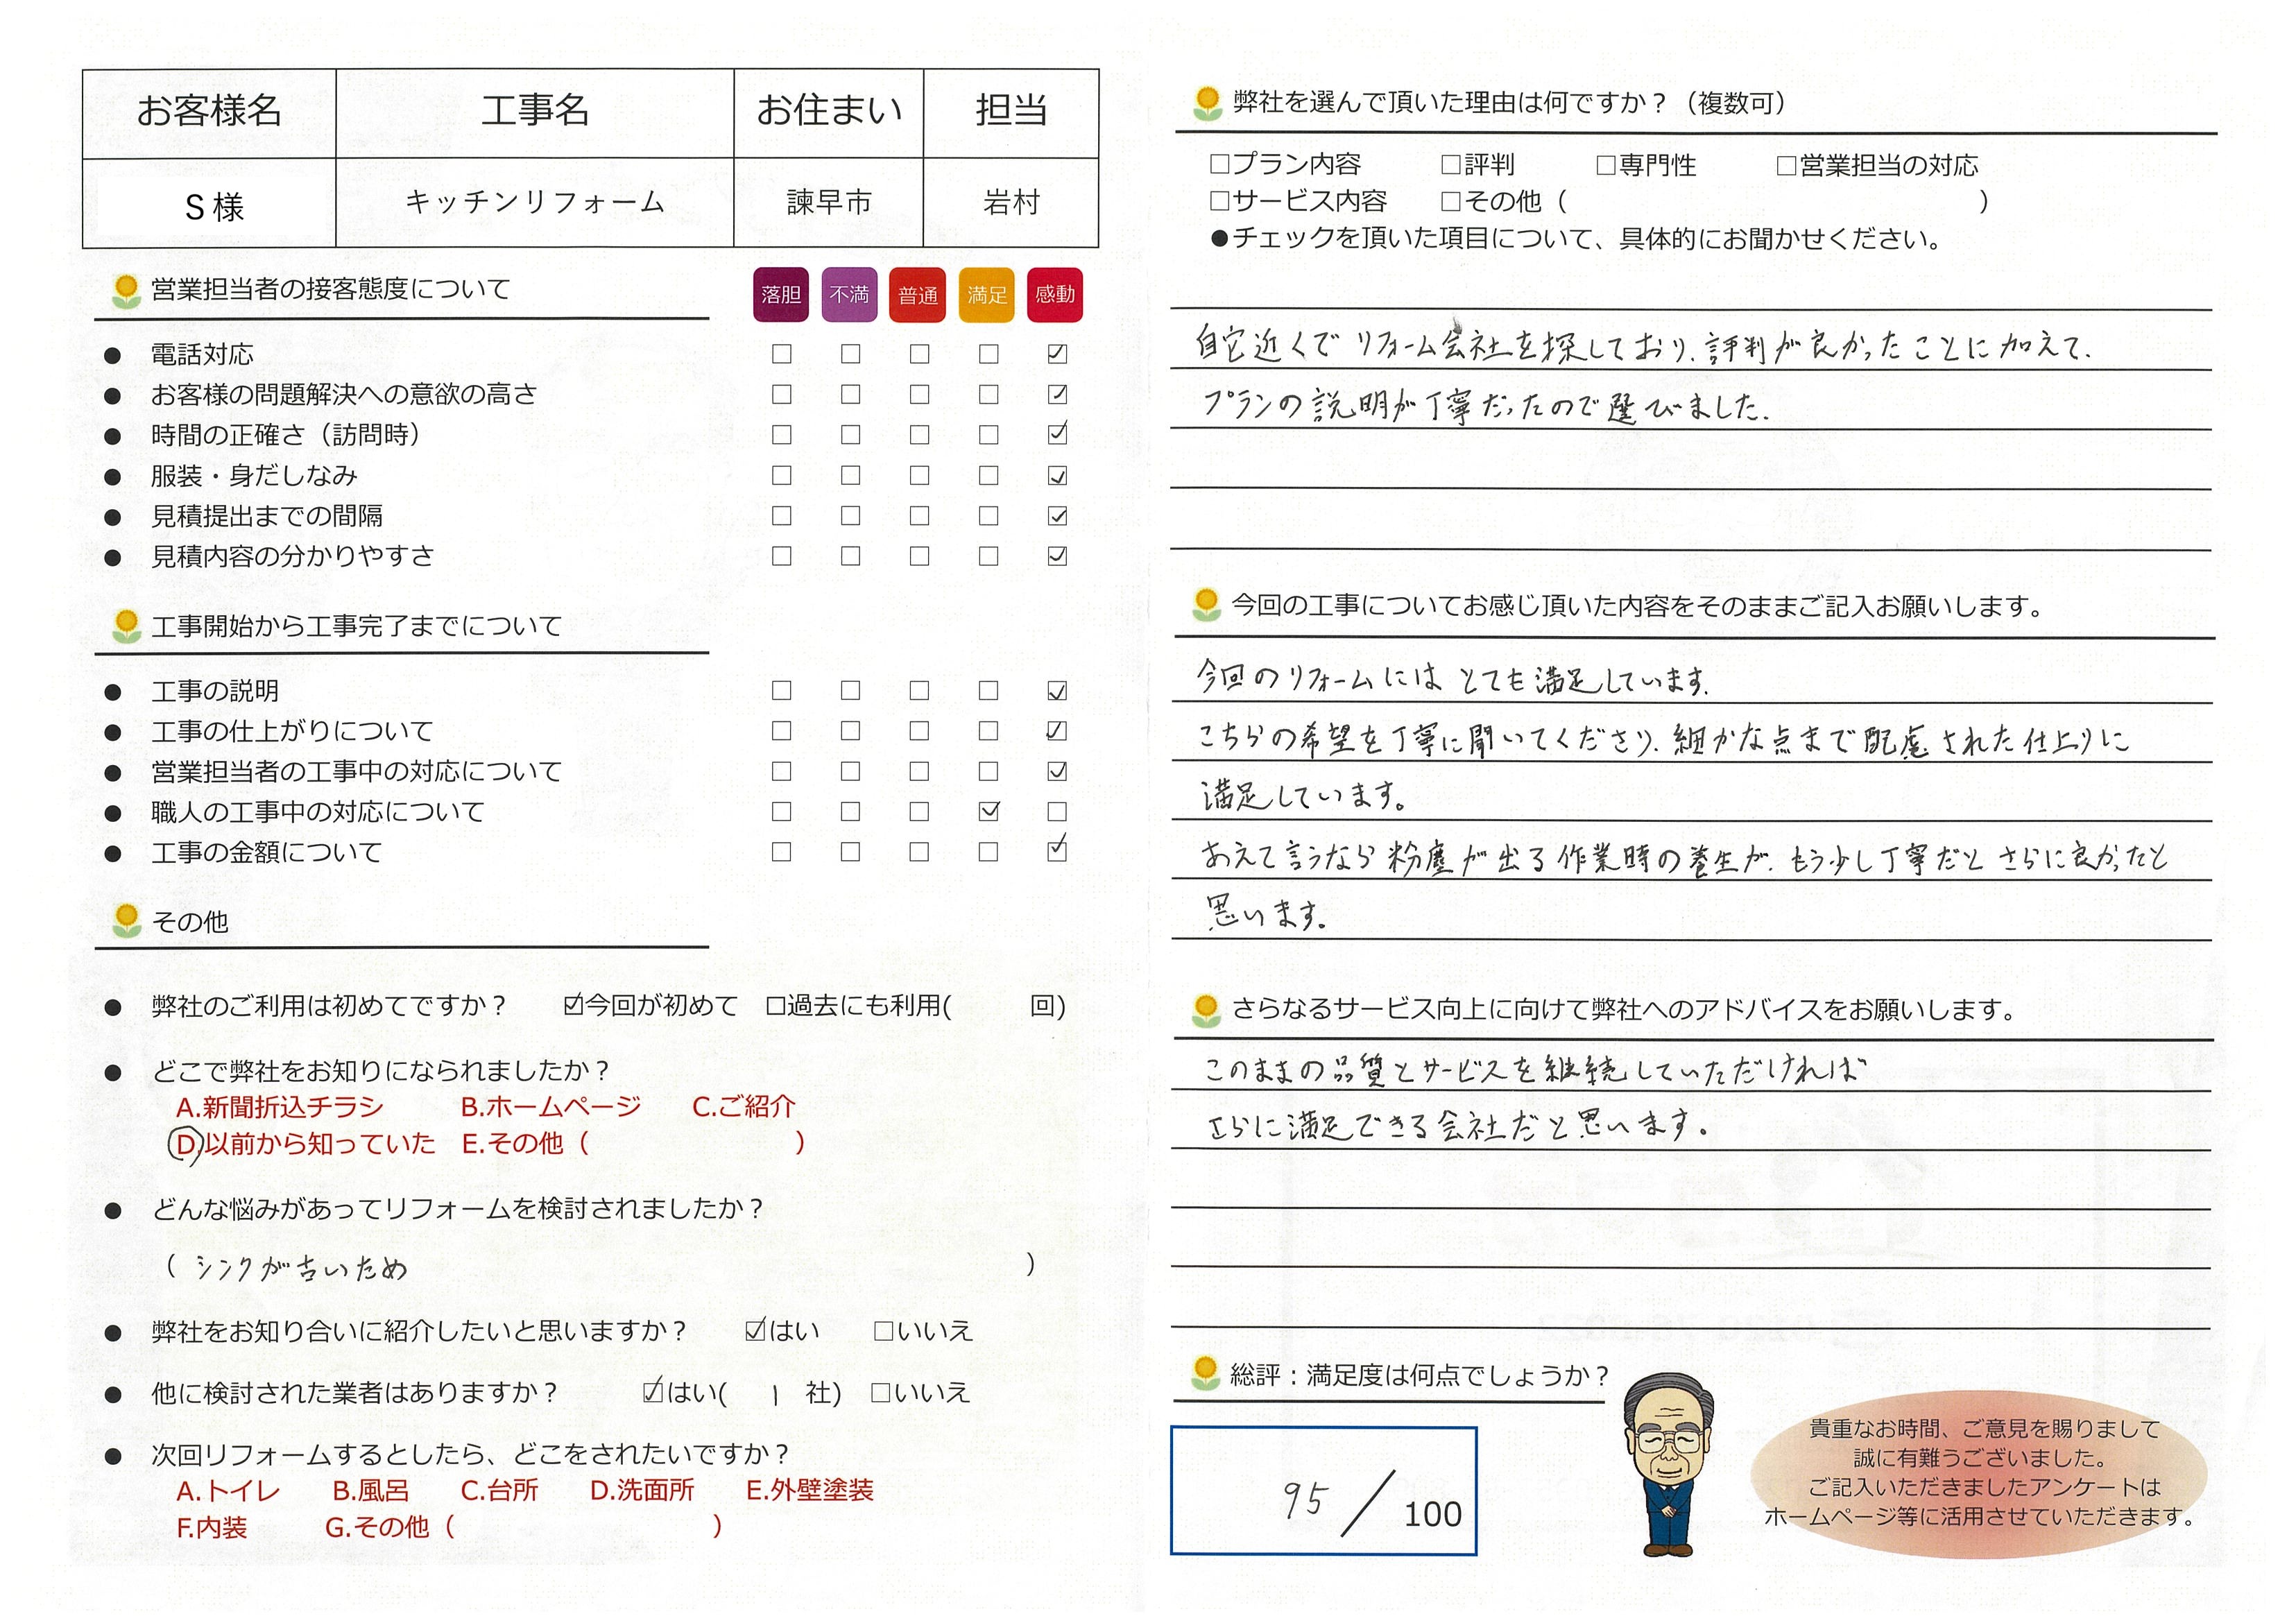 お客様名 工事名 お住まい 担当
S様 キッチンリフォーム 諫早市 岩村
営業担当者の接客態度について 落胆 不満 普通 満足 感動
● 電話対応 □ □ □ □ ☑
● お客様の問題解決への意欲の高さ □ □ □ □ ☑
● 時間の正確さ（訪問時） □ □ □ □ ☑
● 服装・身だしなみ □ □ □ □ ☑
● 見積提出までの間隔 □ □ □ □ ☑
● 見積内容の分かりやすさ □ □ □ □ ☑
工事開始から工事完了までについて
● 工事の説明 □ □ □ □ ☑
● 工事の仕上がりについて □ □ □ □ ☑
● 営業担当者の工事中の対応について □ □ □ □ ☑
● 職人の工事中の対応について □ □ □ ☑ □
● 工事の金額について □ □ □ □ ☑
その他
● 弊社のご利用は初めてですか？ ☑今回が初めて □過去にも利用( 回)
● どこで弊社をお知りになられましたか？
A.新聞折込チラシ B.ホームページ C.ご紹介
D.以前から知っていた E.その他（ ）
● どんな悩みがあってリフォームを検討されましたか？
（ シンクが古いため ）
● 弊社をお知り合いに紹介したいと思いますか？ ☑はい □いいえ
● 他に検討された業者はありますか？ ☑はい( 1 社) □いいえ
● 次回リフォームするとしたら、どこをされたいですか？
A.トイレ B.風呂 C.台所 D.洗面所 E.外壁塗装
F.内装 G.その他（ ）
弊社を選んで頂いた理由は何ですか？（複数可）
□プラン内容 □評判 □専門性 □営業担当の対応
□サービス内容 □その他（ ）
●チェックを頂いた項目について、具体的にお聞かせください。
自宅近くでリフォーム会社を探しており、評判が良かったことに加えて、
プランの説明が丁寧だったので選びました。
今回の工事についてお感じ頂いた内容をそのままご記入お願いします。
今回のリフォームにはとても満足しています。
こちらの希望を丁寧に聞いてくださり、細かな点まで配慮された仕上りに
満足しています。
あえて言うなら粉塵が出る作業時の養生が、もう少し丁寧だとさらに良かったと
思います。
さらなるサービス向上に向けて弊社へのアドバイスをお願いします。
このままの品質とサービスを継続していただければ
さらに満足できる会社だと思います。
総評：満足度は何点でしょうか？
95 / 100
貴重なお時間、ご意見を賜りまして
誠に有難うございました。
ご記入いただきましたアンケートは
ホームページ等に活用させていただきます。